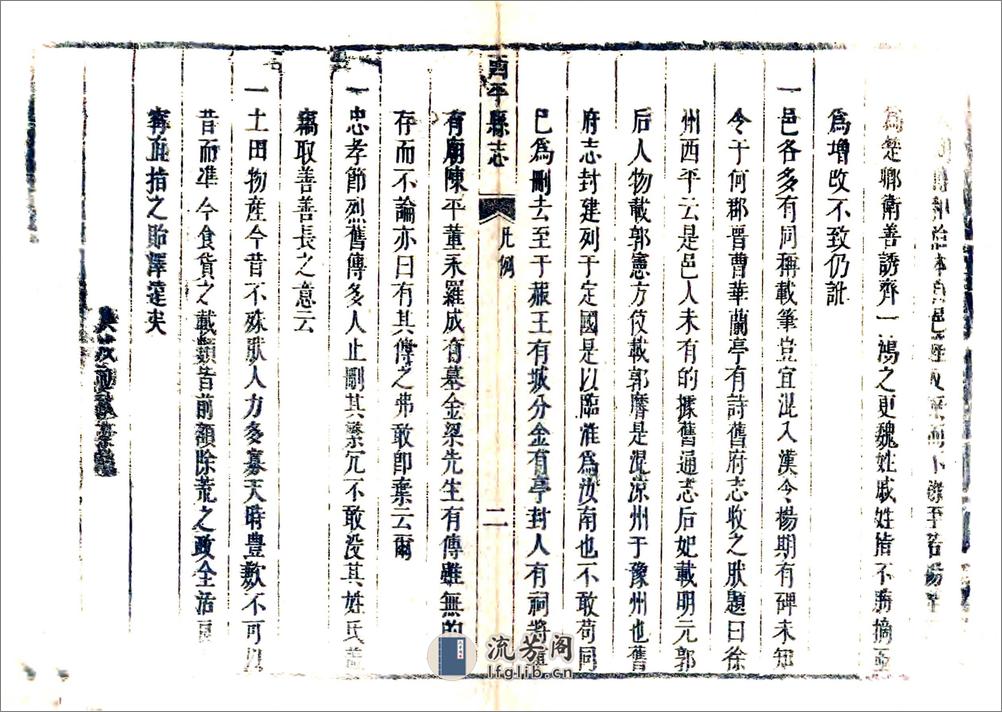 為楚鄉衛善誘齊一鴻之更魏姓戚姓指不勝摘至
為增改不致仍訛
一邑各多有同稱載筆豈宜混入漢令楊期有碑未知
令于何郡晉曹華蘭亭有詩舊府志收之狀題曰徐
州西平云是邑人未有的據舊通志后妃載明元郭
后人物載郭憲方伎載郭麐是混凉州于豫州也舊
府志封建列于定國是以臨淮為汝南也不敢苟同
已為刪去至于蔴王有城分金有亭封人有祠將
有廟陳平董永羅成有墓金梁先生有傳雖無的
存而不論亦曰有其傳之弗敢即棄云爾
一忠孝節烈舊傳多人止刪其繁冗不敢没其姓氏
竊取善善長之意云
一土田物產今昔不殊狀人力多寡天時豊歉不可
昔而準今食貨之載類昔前額除荒之政全活
指之貽澤遠矣
西平縣志
凡例
二
流芳阁
lfglib.cn